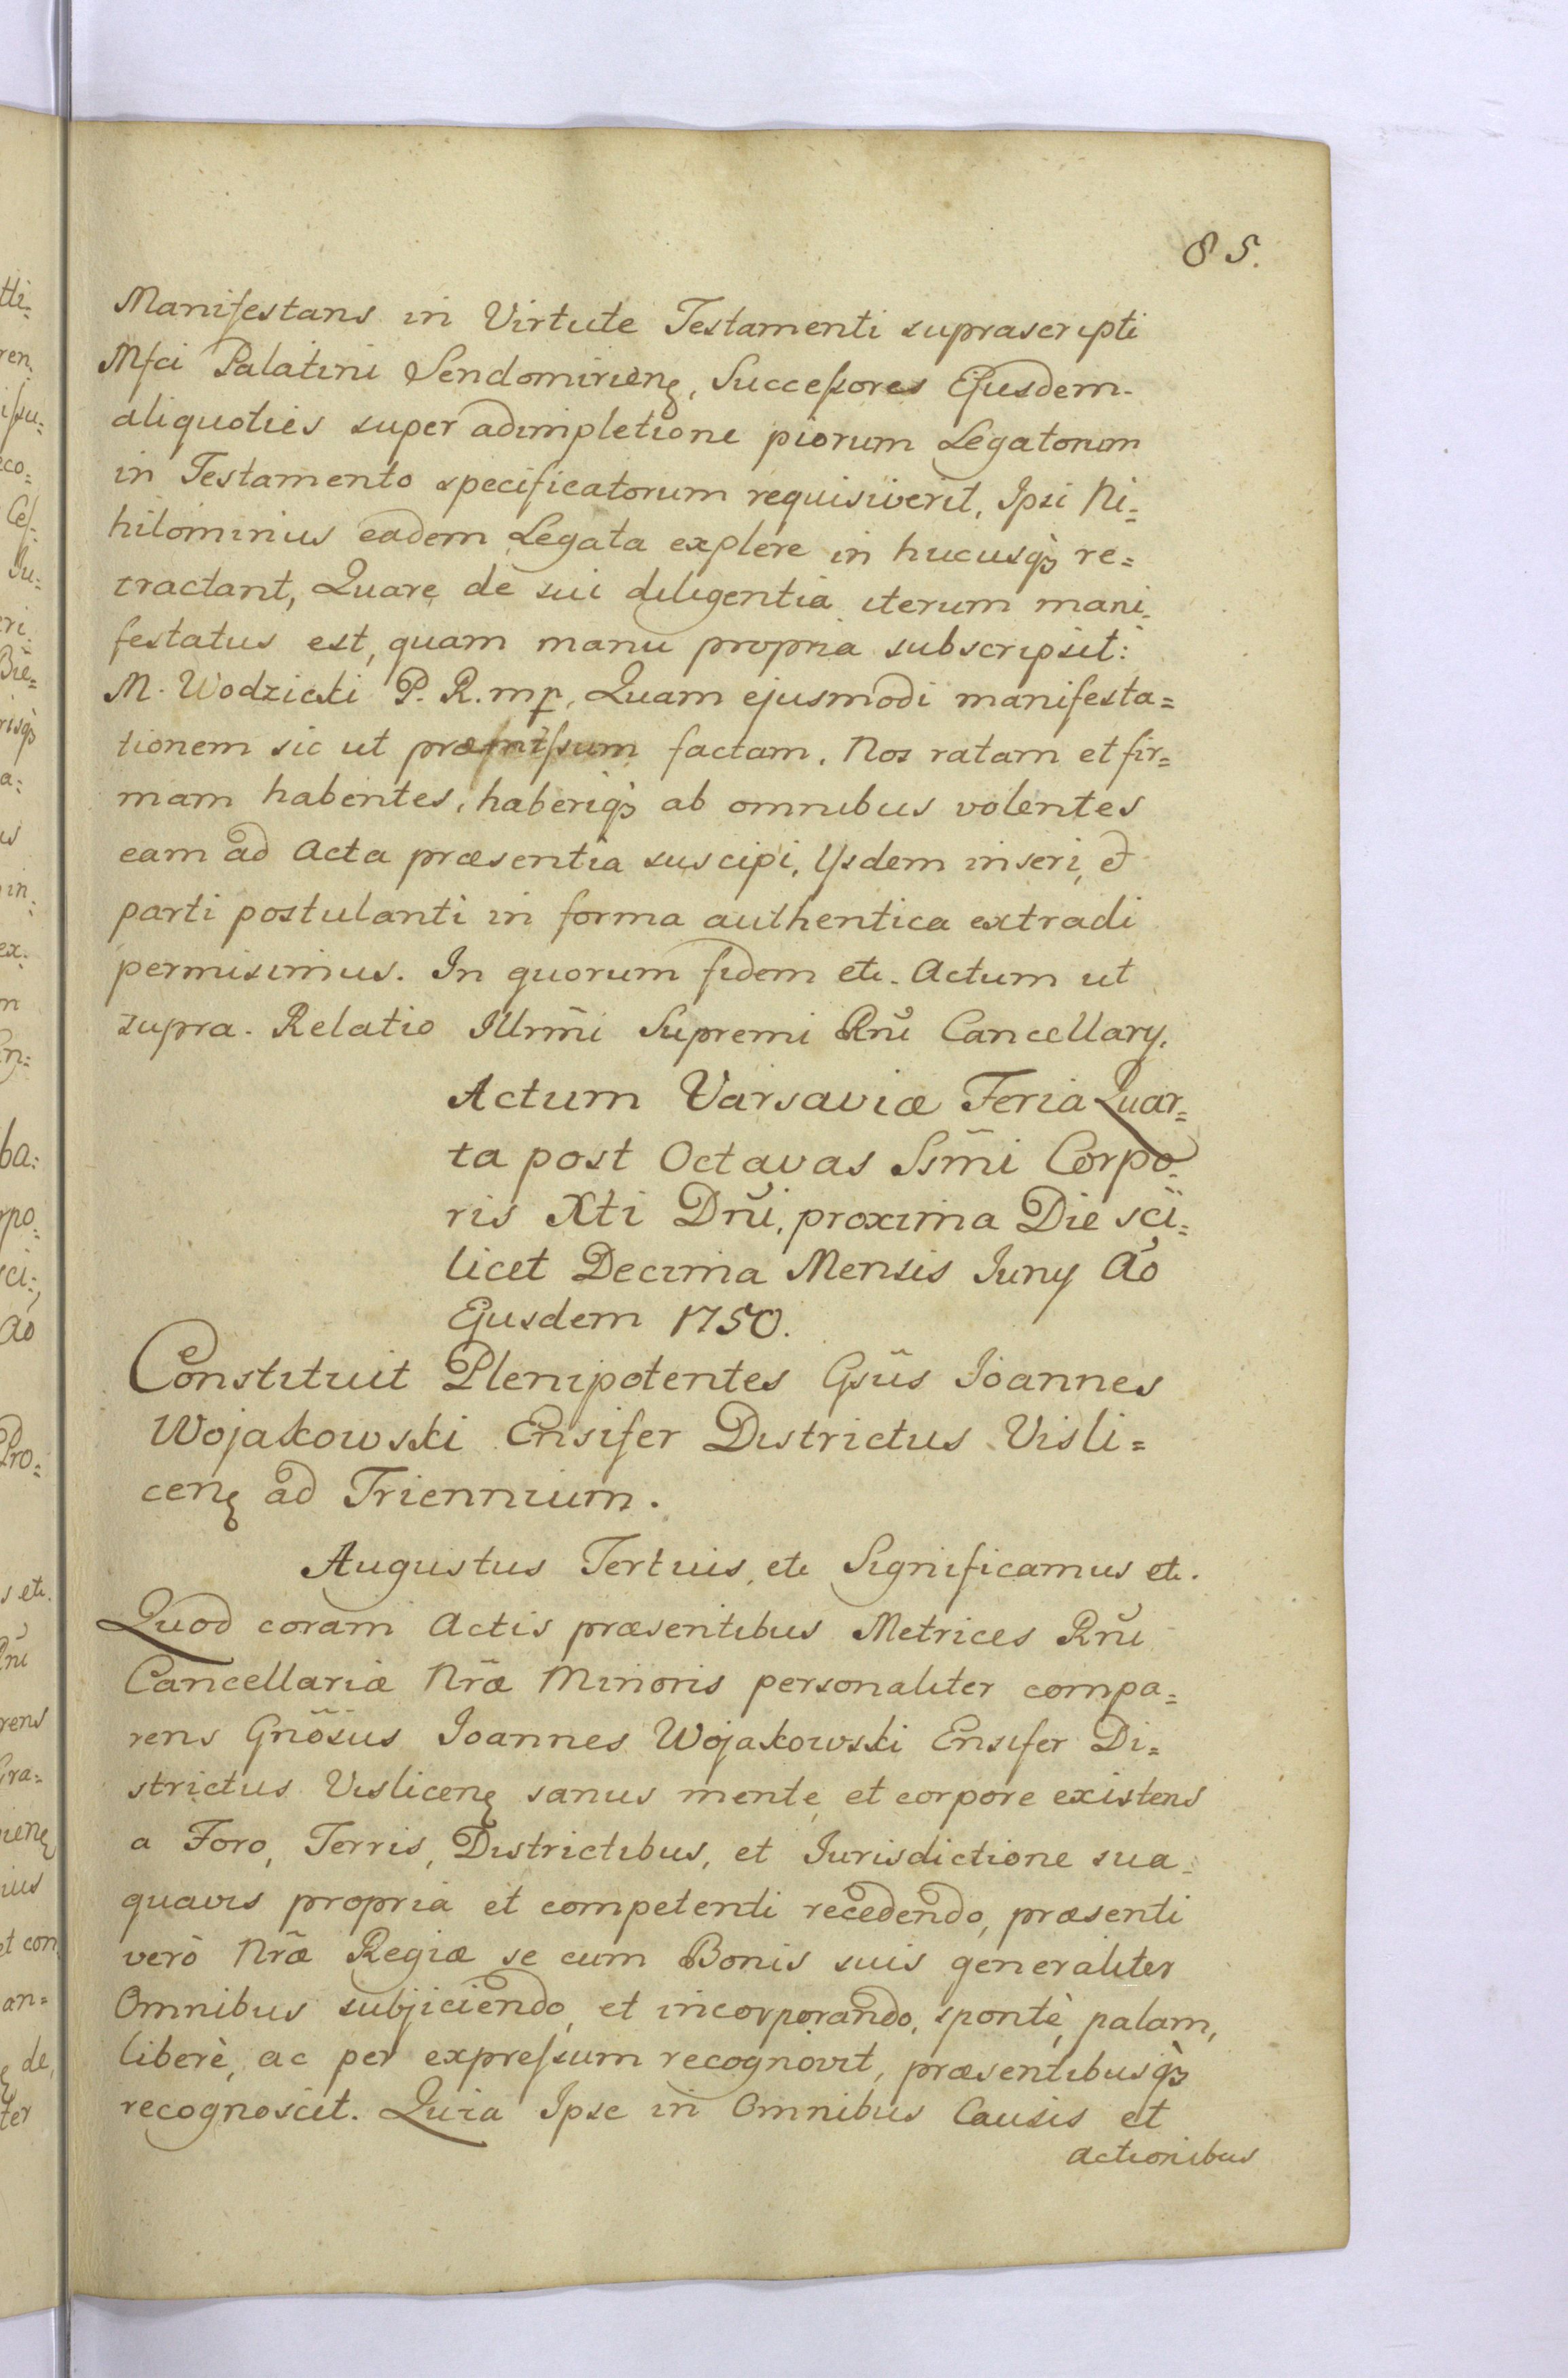 85.
Manifestans in Virtute Testamenti suprascripti
Mfci Palatini Sendomirieng, Succeſsores Ejusdem
aliquoties super adimpletione piorum Legatorum
in Testamento specificatorum requisiverit, Ipsi Ni=
hilominus eadem Legata explere in hucusq̀ꝫ re=
tractant, Quare de sui diligentia iterum mani=
festatus est, quam manu propria subscripsit:
M. Wodzicki P. R. mp, Quam ejusmodi manifesta=
tionem sic ut præmiſsum factam, Nos ratam et fir=
mam habentes, haberiq̀ꝫ ab omnibus volentes
eam ad Acta præsentia suscipi, Ijsdem inseri, et
parti postulanti in forma authentica extradi
permisimus. In quorum fidem etc. Actum ut
supra. Relatio Illrm̃i Supremi Rñi Cancellary.
Actum Varsaviæ Feria Quar=
ta post Octavas Ssm̃i Corpo=
ris Xti Dñi, proxima Die sci=
licet Decima Mensis Juny Aõ
Ejusdem 1750.
Constituit Plenipotentes Gsũs Joannes
Wojakowski Ensifer Districtus Visli=
ceng ad Triennium.
Augustus Tertuis, etc Significamus etc.
Quod coram Actis præsentibus Metrices Rñi
Cancellariæ Nrã Minoris personaliter compa=
rens Gnõsus Joannes Wojakowski Ensifer Di=
strictus Visliceng sanus mente et corpore existens
a Foro, Terris, Districtibus, et Jurisdictione sua=
quavis propria et competenti recedendo, præsenti
verò Nrã Regiæ se cum Bonis suis generaliter
Omnibus subjiciendo et incorporando, spontè, palam,
liberè, ac per expreſsum recognovit, præsentibusq̀ꝫ
recognoscit. Quia Ipse in Omnibus Causis et
actionibus